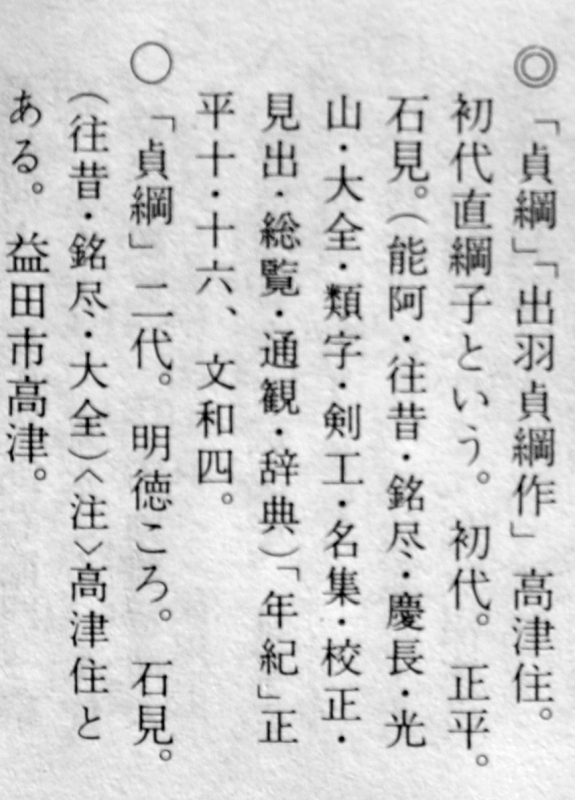 ◎「貞綱」「出羽貞綱作」高津住。
初代直綱子という。初代。正平。
石見。(能阿・往昔・銘尽・慶長・光
山・大全・類字・剣工・名集・校正・
見出・総覧・通観・辞典)「年紀」正
平十・十六、文和四。
○「貞綱」二代。明徳ころ。石見。
(往昔・銘尽・大全)<注>高津住と
ある。益田市高津。